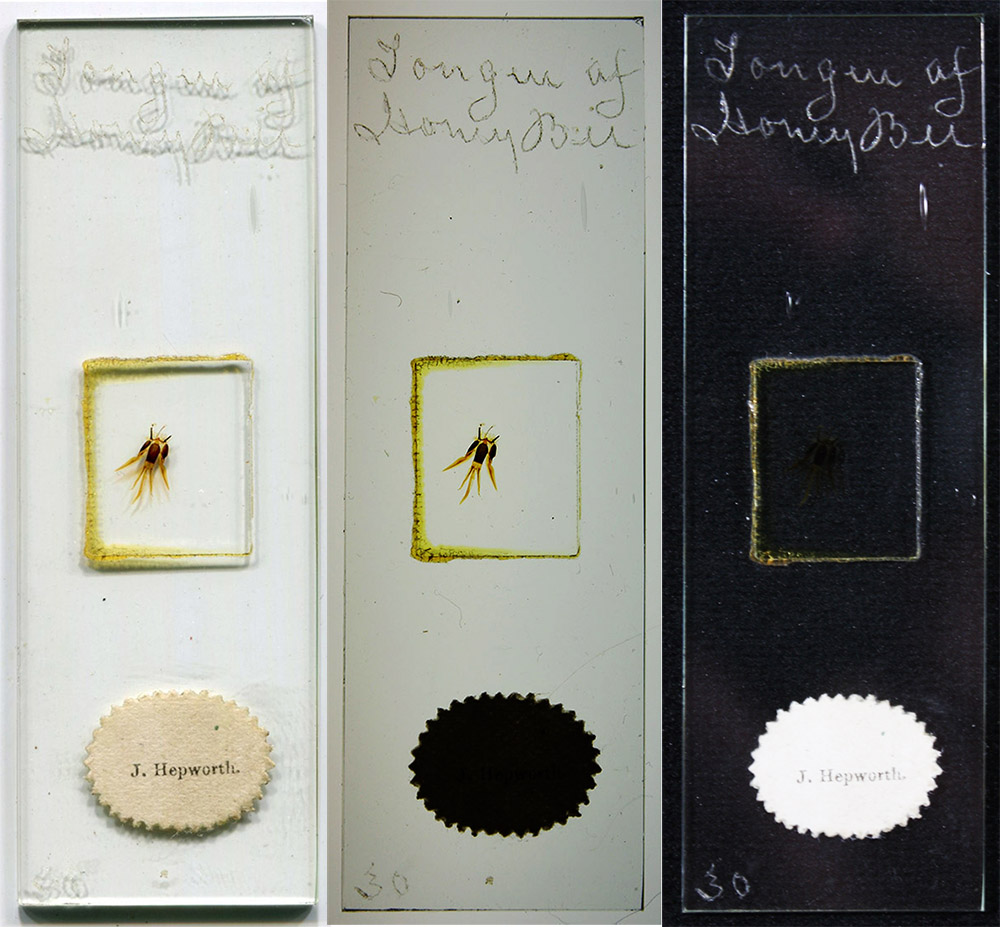 Tongue of
Honey Bee
J. Hepworth.
30
Tongue of
Honey Bee
J. Hepworth.
30
Tongue of
Honey Bee
J. Hepworth.
30